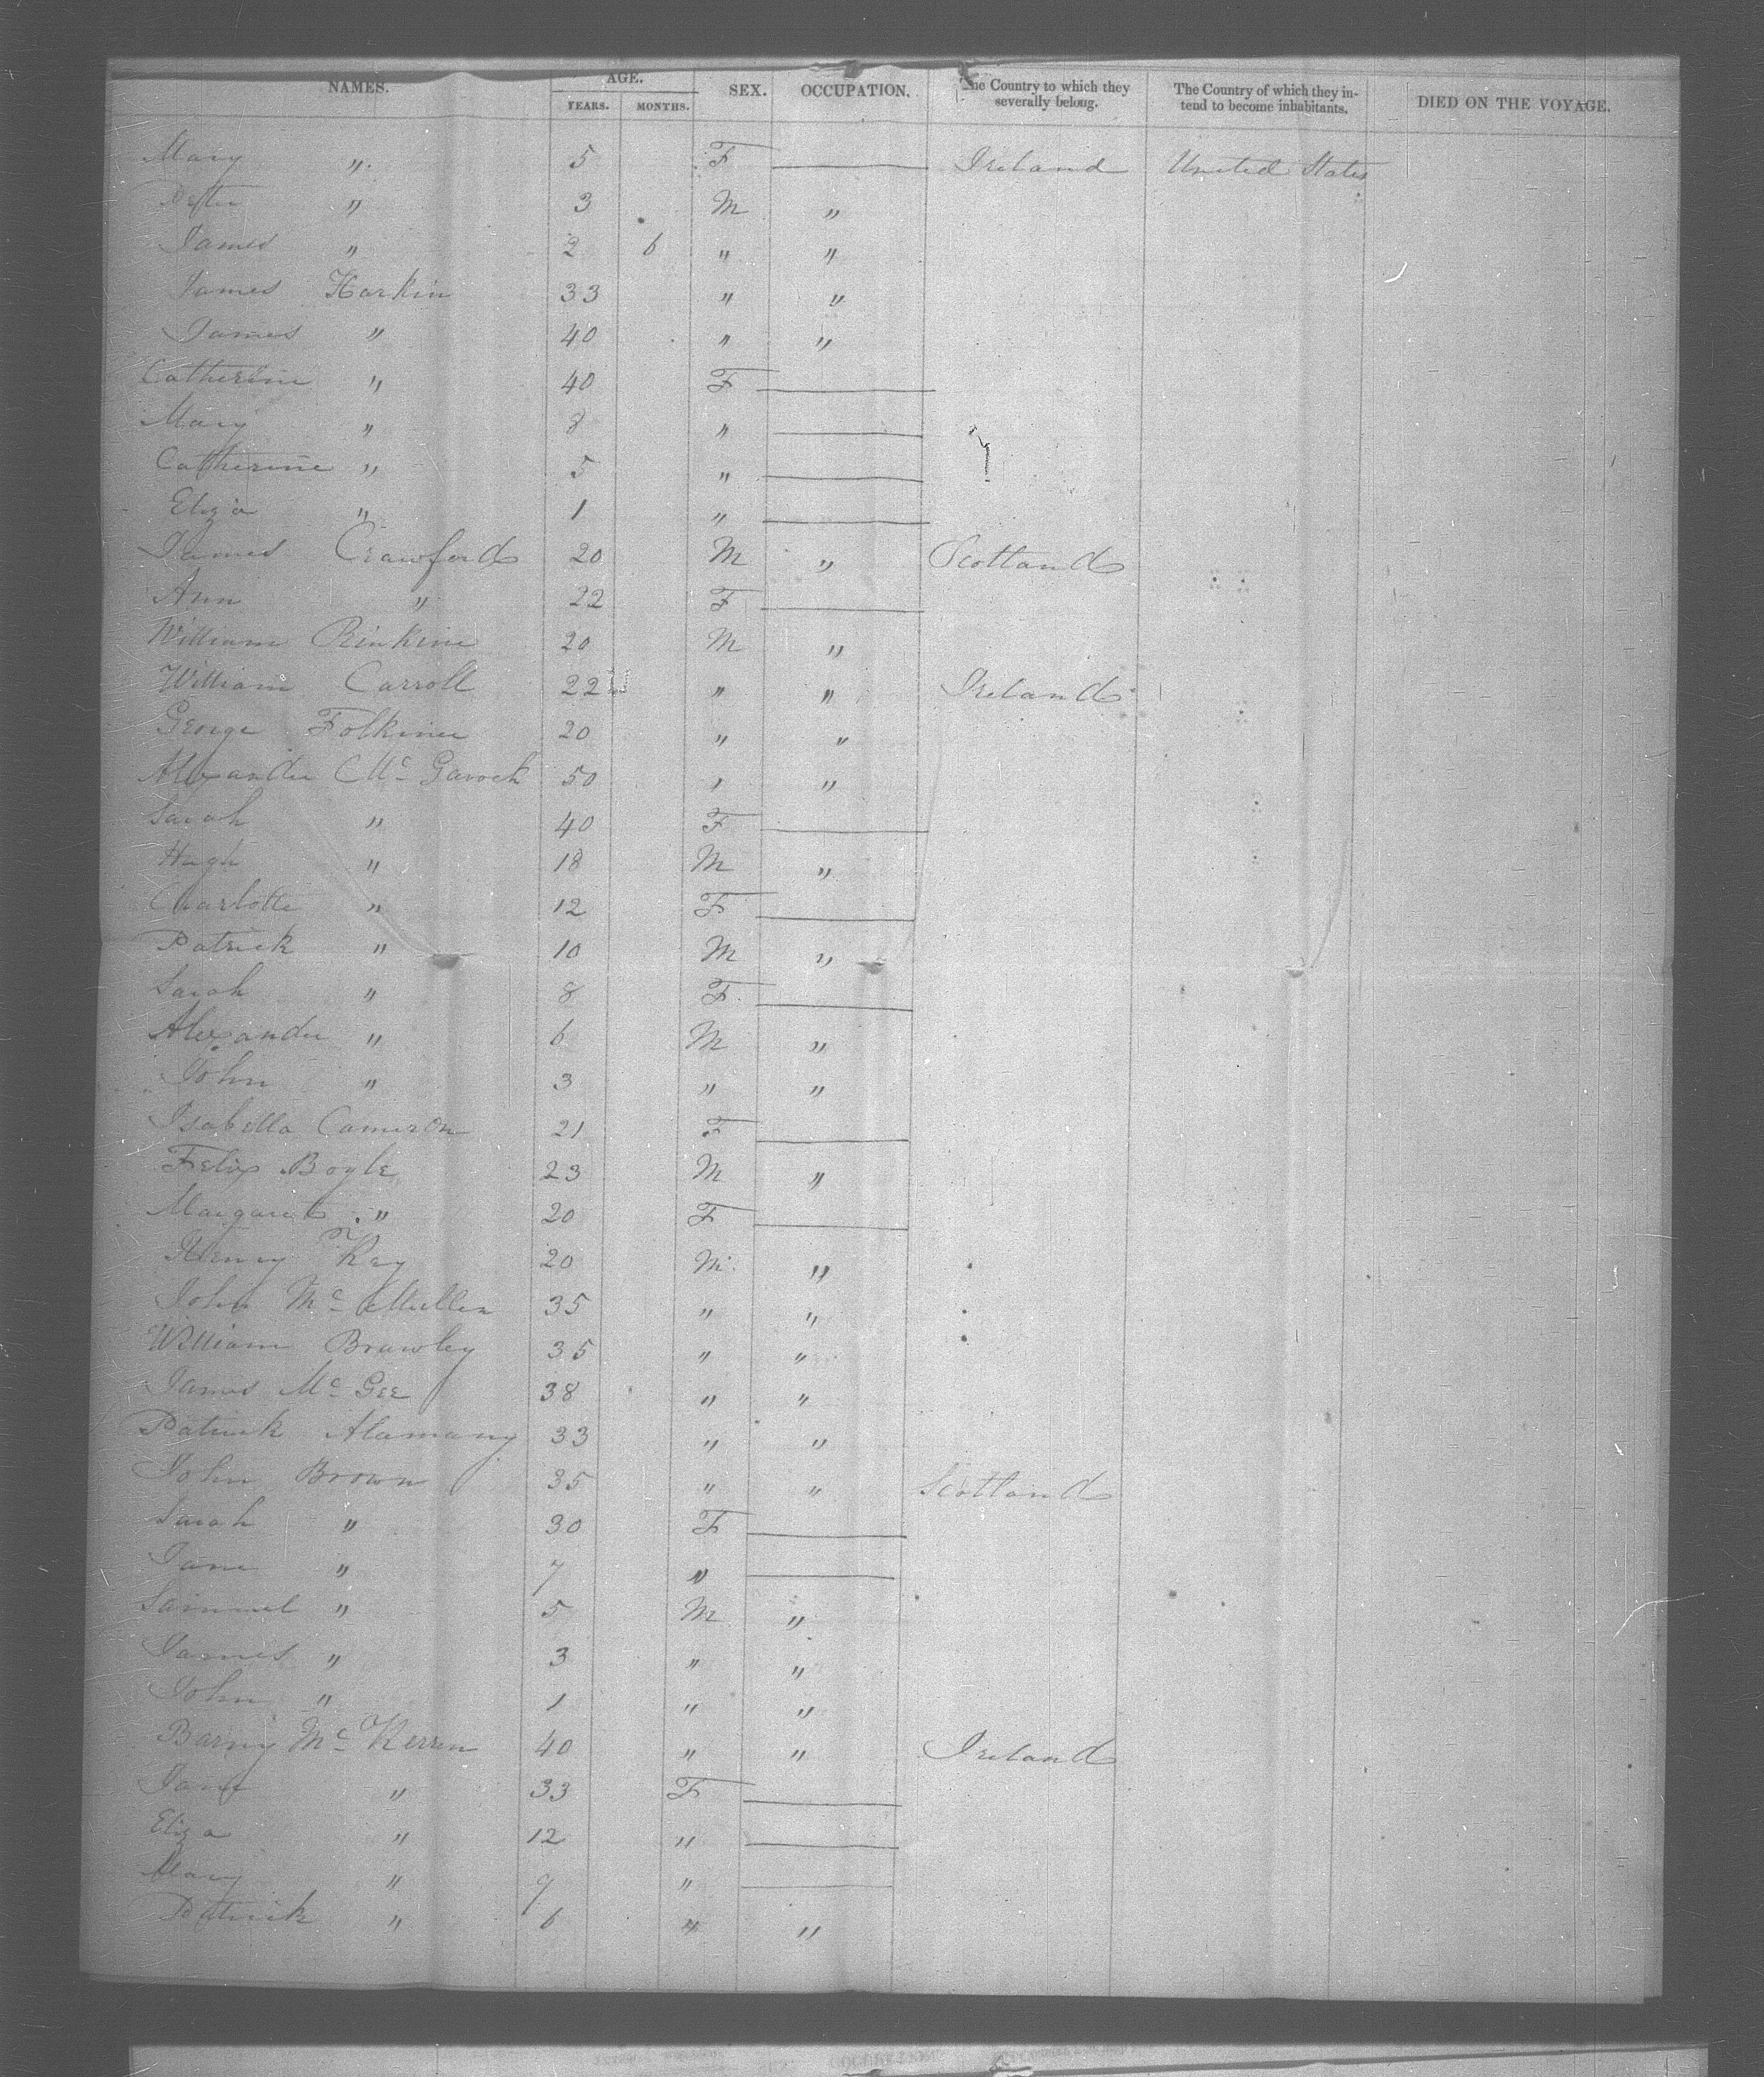 NAMES. AGE. SEX. OCCUPATION. The Country to which they severally belong. The Country of which they intend to become inhabitants. DIED ON THE VOYAGE.
YEARS. MONTHS.
Mary " 5 F Ireland United States
Peter " 3 M "
James " 2 6 " "
James Harkin 33 " "
James " 40 " "
Catherine " 40 F
Mary " 8 "
Catherine " 5 "
Eliza " 1 "
James Crawford 20 M " Scotland
Ann " 22 F
William 20 M "
William Carroll 22 " " Ireland
George 20 " "
Alexander Mc Gavock 50 " "
Sarah " 40 F
Hugh " 18 M "
Charlotte " 12 F
Patrick " 10 M "
Sarah " 8 F
Alexander " 6 M "
John " 3 " "
Isabella Cameron 21 F
Felix Boyle 23 M "
Margaret " 20 F
Henry 20 M "
John Mc Mullen 35 " "
William Brawley 35 " "
James Mc Gee 38 " "
Patrick 33 " "
John Brown 35 " " Scotland
Sarah " 30 F
Jane " 7 "
Samuel " 5 M "
James " 3 " "
John " 1 " "
Barny Mc Kerren 40 " " Ireland
Jane " 33 F
Eliza " 12 "
Mary " 9 "
Patrick " 6 " "